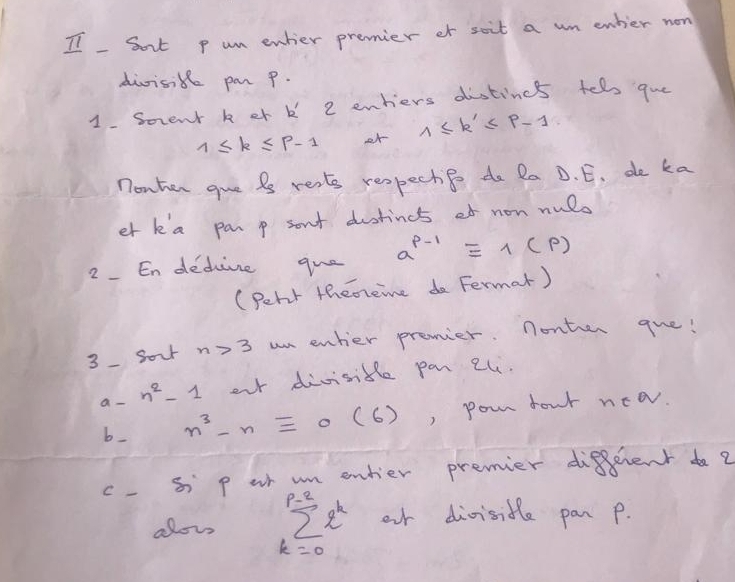 II - Soit p un entier premier et soit a un entier non
divisible par p.
1 - Soient k et k' 2 entiers distincts tels que
1 ≤ k ≤ P-1 et 1 ≤ k' ≤ P-1.
Montrer que les restes respectifs de la D.E. de ka
et k'a par p sont distincts et non nuls
2 - En déduire que a^{P-1} ≡ 1 (P)
(Petit théorème de Fermat)
3 - Soit n > 3 un entier premier. Montrer que :
a - n² - 1 est divisible par 24.
b - n³ - n ≡ 0 (6), pour tout n ∈ ℕ.
c - Si p est un entier premier différent de 2
alors \sum_{k=0}^{P-2} 2^k est divisible par P.